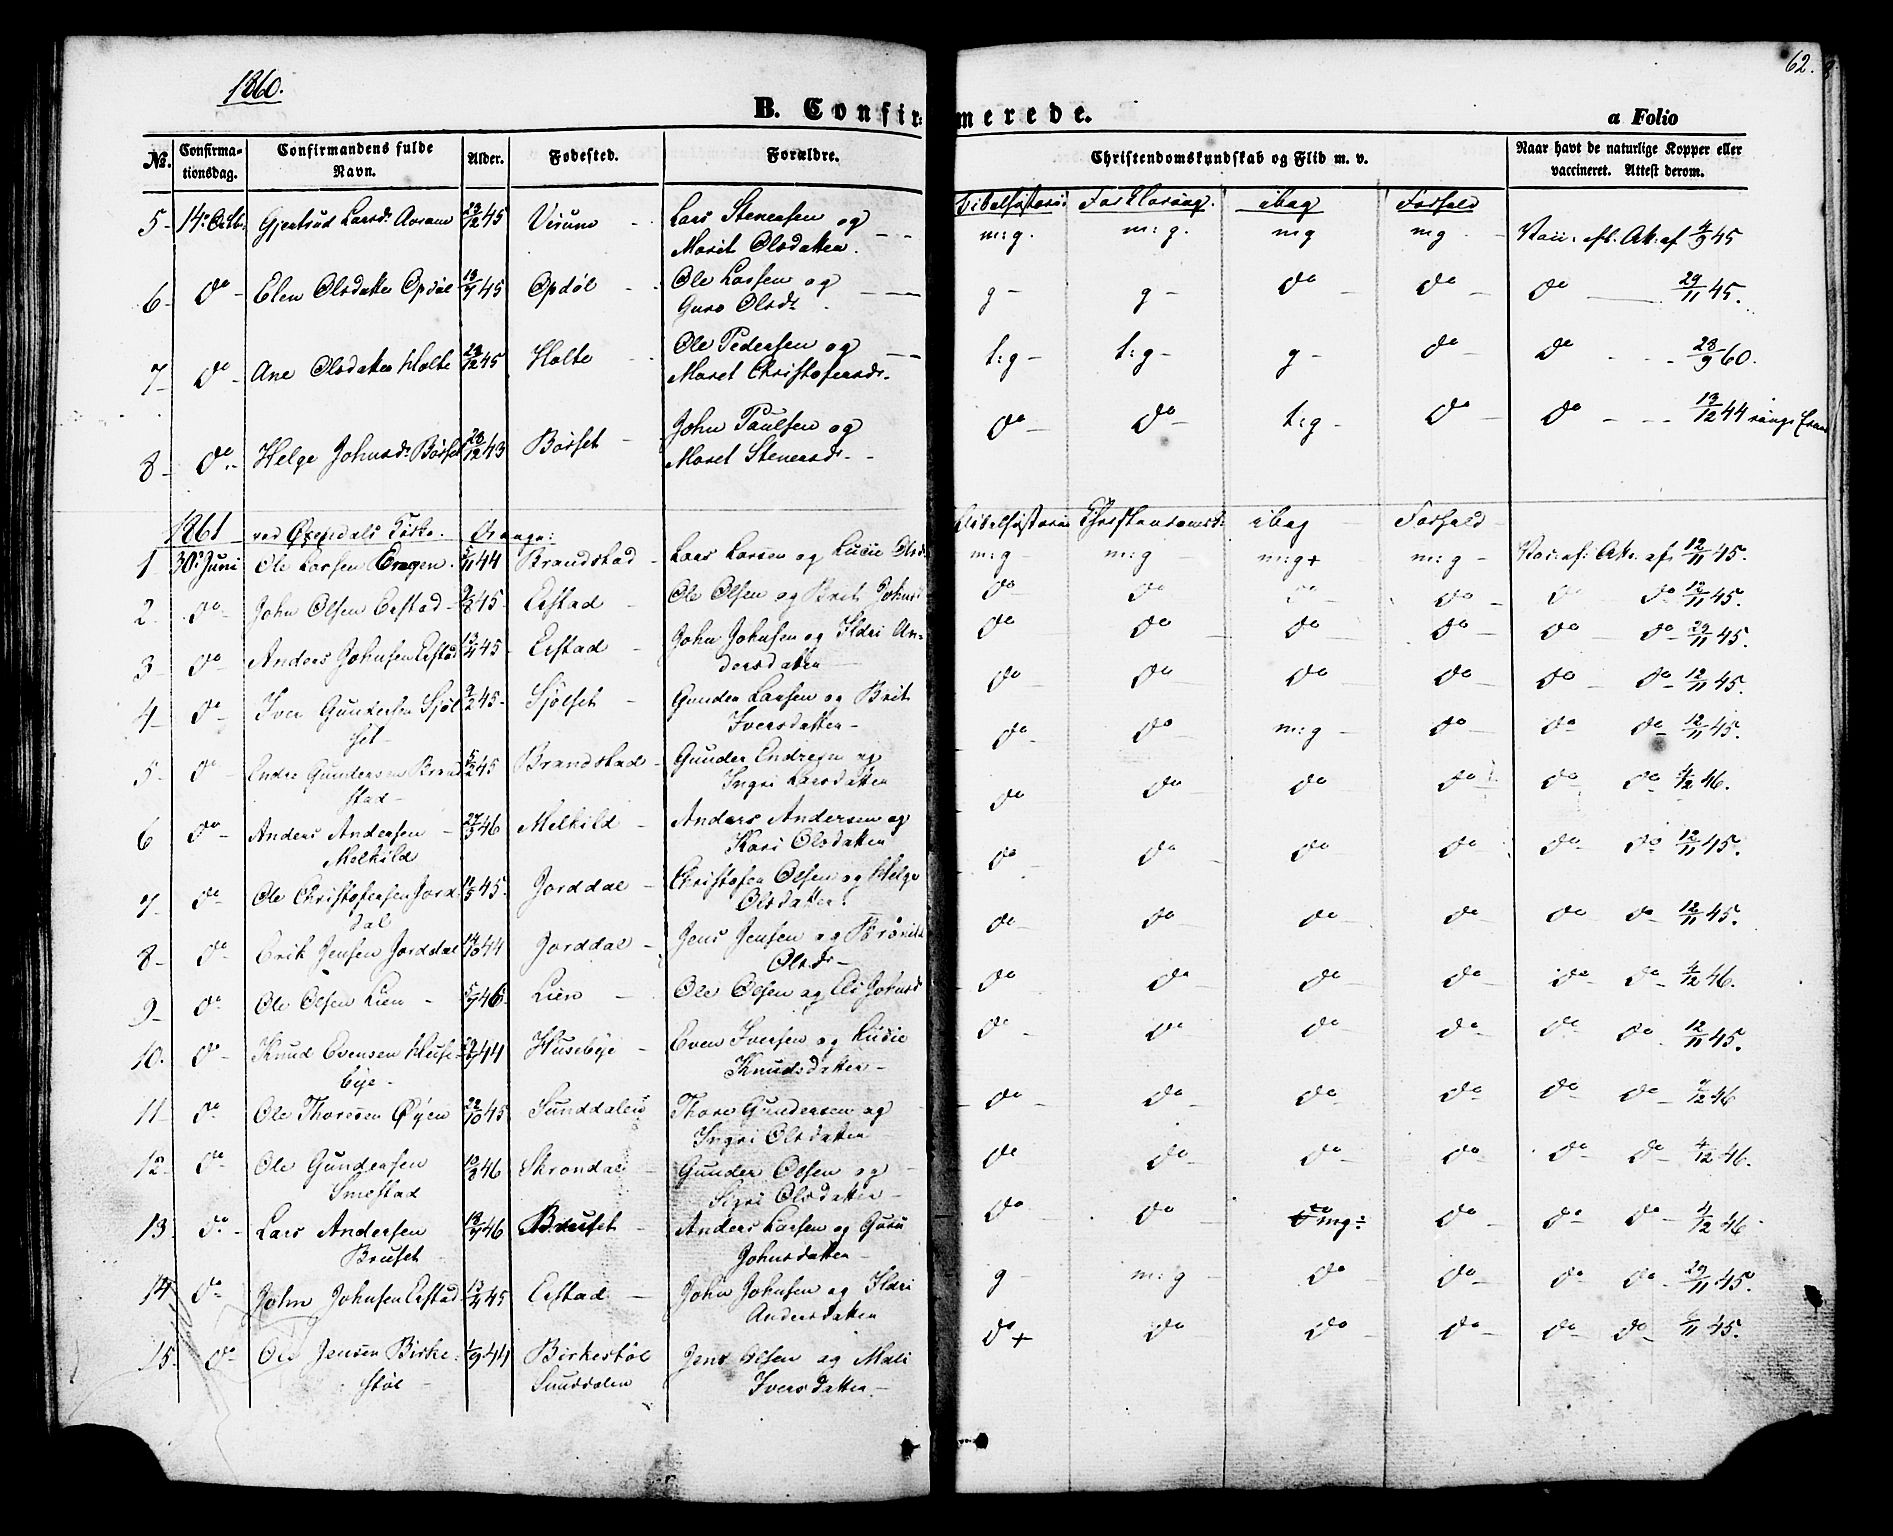 1860.
62.
B. Confirmerede.
a Folio
No. Confirmationsdag. Confirmandens fulde Navn. Alder. Fødested. Forældre. Christendomskundskab og Flid m. v. Naar havt de naturlige Kopper eller vaccineret. Attest derom.
Bibelhistorie Forklaring. ibog Forhold
5 - 14. Octb. Gjertrud Larsd. 23/12 45 Virum - Lars Stenersen og Marit Olsdatter. m:g. m:g. mg mg - Vacc: efl: Att: af 4/9 45
6 - do - Elen Olsdatter Opdøl 13/9 45 Opdøl - Ole Larsen og Guro Olsdr g - g - do do - do 29/11 45.
7 - do - Ane Olsdatter Holte 28/12 45 Holte - Ole Pedersen og Maret Christofersdr. t:g - t:g - g - do - do - 28/9 60.
8 - do - Helge Johnsdr Børset 28/12 43 Børset - John Paulsen og Maret Stenersdr - do - do - t:g - do - do - 13/12 44
1861 ved Øxendals Kirke. Drenge: Bibelhistorie Christendomsk: ibog Forhold
1 30. Juni Ole Larsen Engen. 5/11 44 Brandstad - Lars Larsen og Lucie Olsd: m:g - m:g m:g+ m:g - Vac: af: Att: af 12/11 45.
2. do - John Olsen Erstad - 9/8 45 - Erstad - Ole Olsen og Brit Johnsd do do do - do - do do - 12/11 45.
3 - do - Anders Johnsen Erstad 13/4 45 - Erstad - John Johnsen og Ildri Andersdatter do - do - do - do - do - do - 29/11 45.
4 - do - Iver Gundersen Sjølset - 9/2 45 - Sjølset - Gunder Larsen og Brit Iversdatter - do - do - do - do - do - do - 12/11 45.
5 - do - Endre Gundersen Brandstad - 5/2 45 Brandstad - Gunder Endresen og Ingri Larsdatter do - do - m:g - do - do - do - 12/11 45.
6 do - Anders Andersen - Melkild 27/3 46 Melkild - Anders Andersen og Kari Olsdatter do do - do do - do - do - 4/12 46.
7 - do - Ole Christofersen Jorddal 11/5 45. Jorddal - Christofer Olsen og Helge Olsdatter do - do - do do - do - do - 12/11 45.
8 - do - Erik Jensen Jorddal 14/10 44 Jorddal - Jens Jensen og Olsdr - do - do do - do - do - do - 12/11 45.
9 - do - Ole Olsen Lien - 5/9 46 Lien - Ole Olsen og Eli Johnsd do - do do - do - do - do - 4/12 46.
10. do - Knud Evensen Husebye - 44 Husebye - Even Iversen og Lucie Knudsdatter - do - do do - do - do - do - 12/11 45.
11 - do - Ole Thoresen Øyen 22/10 45. Sunddalen Thore Gundersen og Ingri Olsdatter do - do - do - do - do - do - 4/12 46
12 - do - Ole Gundersen Smestad 10/3 46 Skrondal - Gunder Olsen og - Sigri Olsdatter - do do - do - do - do - do - 4/12 46.
13. do - Lars Andersen Bruset - 13/9 46 Bruset - Anders Larsen og Guru Johnsdatter - do - do - mg÷ do - do - do - 4/12 46 -
14 do - John Johnsen Erstad 13/4 45 Erstad - John Johnsen og Ildri Andersdatter g - m:g - do - do - do - do - 29/11 45.
15. do - Ole Jensen Birkestøl - 1/9 44 Birkestøl Sunddalen Jens Olsen og Mali Iversdatter. - do + do do - do - do - do - 45.